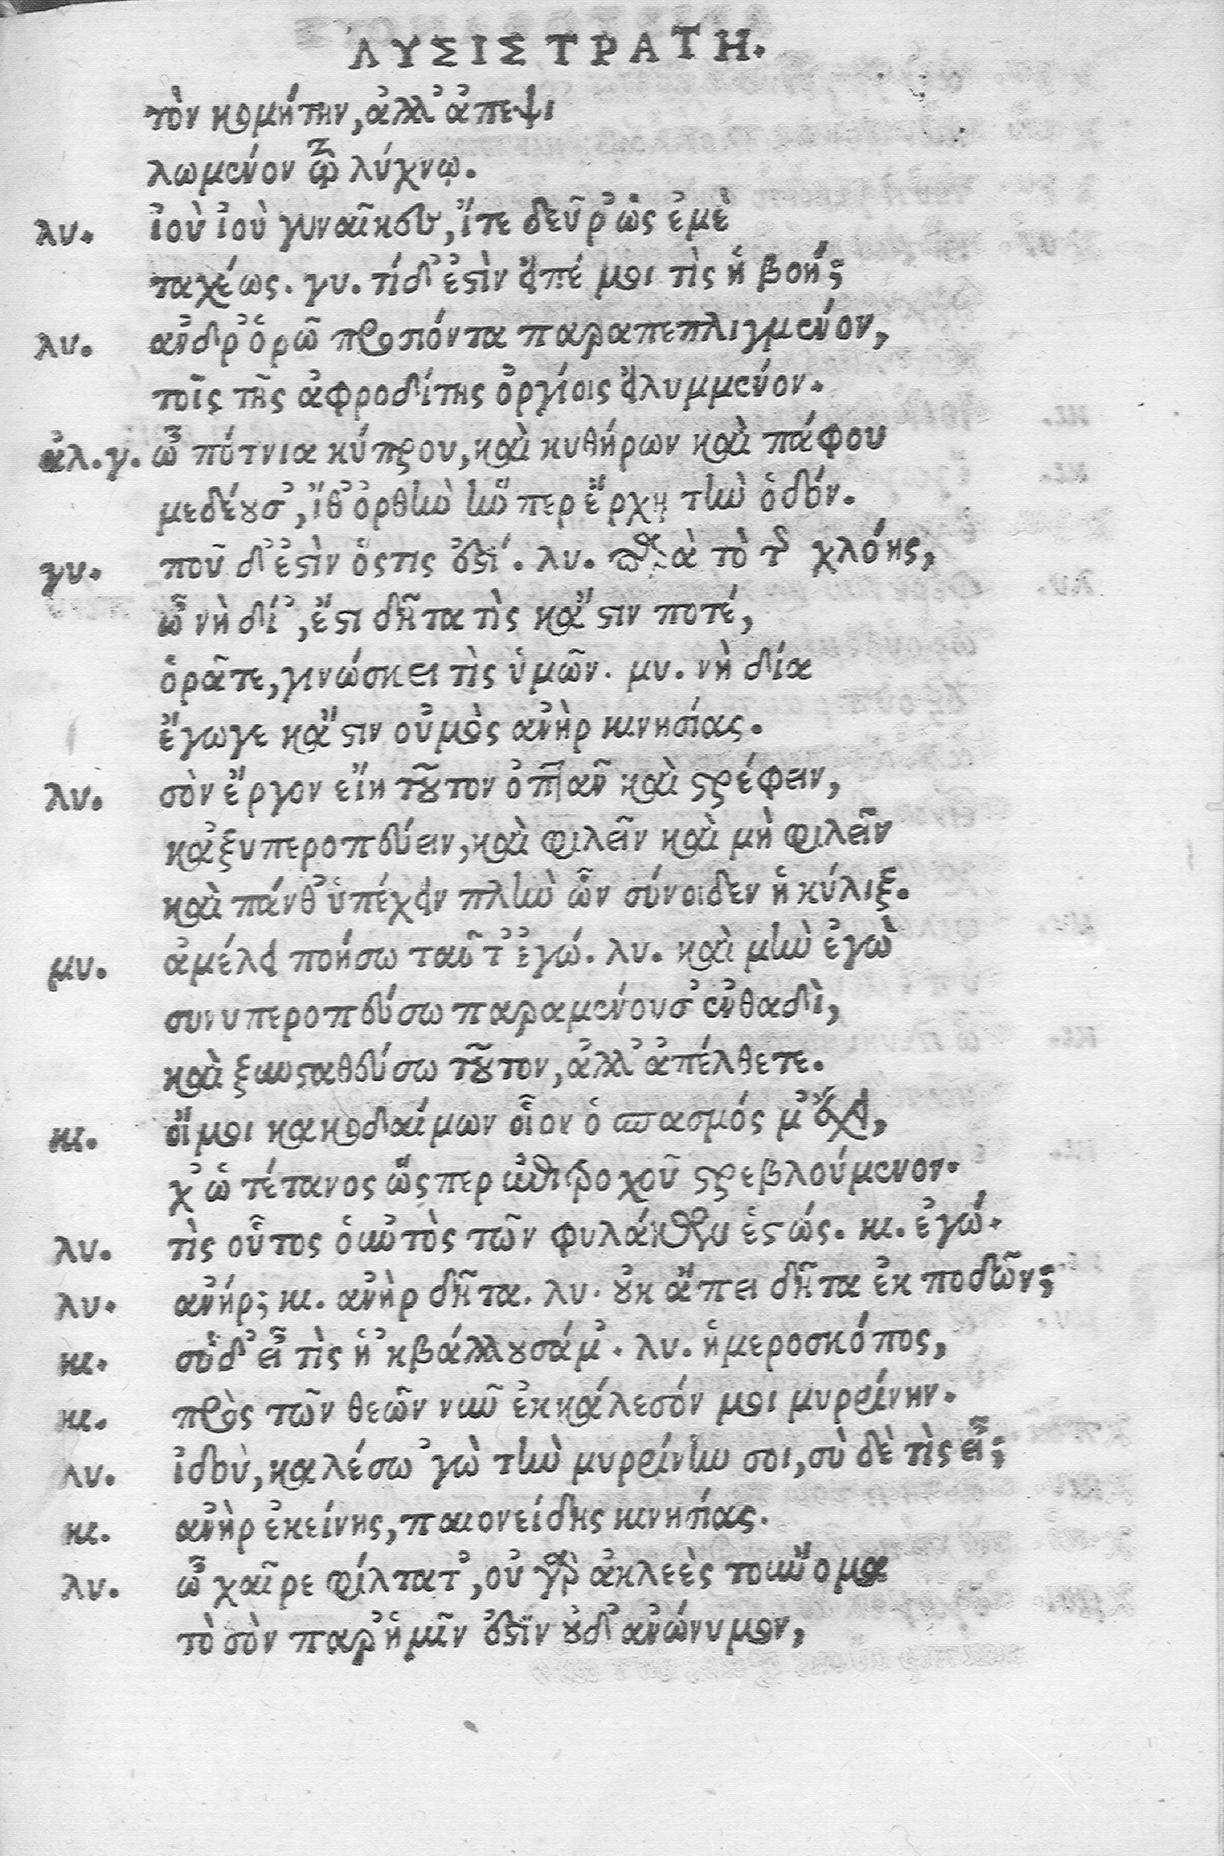 ΛΥΣΙΣΤΡΑΤΗ.
τὸν κομήτην, ἀλλ' ἀπεψι
λωμένον τῷ λύχνῳ.
λυ. ἰοὺ ἰοὺ γυναῖκες, ἴτε δεῦρ' ὡς ἐμὲ
ταχέως. γυ. τί δ' ἐστὶν εἰπέ μοι τὶς ἡ βοή;
λυ. ἄνδρ' ὁρῶ προσιόντα παραπεπληγμένον,
τοῖς τῆς ἀφροδίτης ὀργίοις εἰλυμμένον.
ἀλ. γ. ὦ πότνια κύπρου, καὶ κυθήρων καὶ πάφου
μεδέουσ', ἴθ' ὀρθὴν ἥνπερ ἔρχῃ τὴν ὁδόν.
γυ. ποῦ δ' ἐστὶν ὅστις ἐστί. λυ. παρὰ τὸ τῆς χλόης,
ὦ νὴ δί', ἔστι δῆτα τὶς κἄστιν ποτέ,
ὁρᾶτε, γινώσκει τὶς ὑμῶν. μυ. νὴ δία
ἔγωγε κἄστιν οὑμὸς ἀνὴρ κινησίας.
λυ. σὸν ἔργον εἴη τοῦτον ὀπτᾶν καὶ στρέφειν,
κἀξυπεροπεύειν, καὶ φιλεῖν καὶ μὴ φιλεῖν
καὶ πάνθ' ὑπέχειν πλὴν ὧν σύνοιδεν ἡ κύλιξ.
μυ. ἀμέλει ποήσω ταῦτ' ἐγώ. λυ. καὶ μὴν ἐγὼ
συνυπεροπεύσω παραμένουσ' ἐνθαδὶ,
καὶ ξυσταθεύσω τοῦτον, ἀλλ' ἀπέλθετε.
κι. οἴμοι κακοδαίμων οἷον ὁ σπασμός μ' ἔχει,
χ' ὡ τέτανος ὥσπερ ἐπὶ τροχοῦ στρεβλούμενον.
λυ. τὶς οὗτος ὁ ἐντὸς τῶν φυλάκων ἑστώς. κι. ἐγώ.
λυ. ἀνήρ; κι. ἀνὴρ δῆτα. λυ. οὐκ ἄπει δῆτα ἐκ ποδῶν;
κι. σὺ δ' εἶ τὶς ἡ 'κβάλλουσά μ'. λυ. ἡμεροσκόπος,
κι. πρὸς τῶν θεῶν νῦν ἐκκάλεσόν μοι μυρρίνην.
λυ. ἰδοὺ, καλέσω 'γὼ τὴν μυρρίνην σοι, σὺ δὲ τὶς εἶ;
κι. ἀνὴρ ἐκείνης, παιονείδης κινησίας.
λυ. ὦ χαῖρε φίλτατ', οὐ γὰρ ἀκλεὲς τοὔνομα
τὸ σὸν παρ' ἡμῖν ἐστὶν οὐδ' ἀνώνυμον,